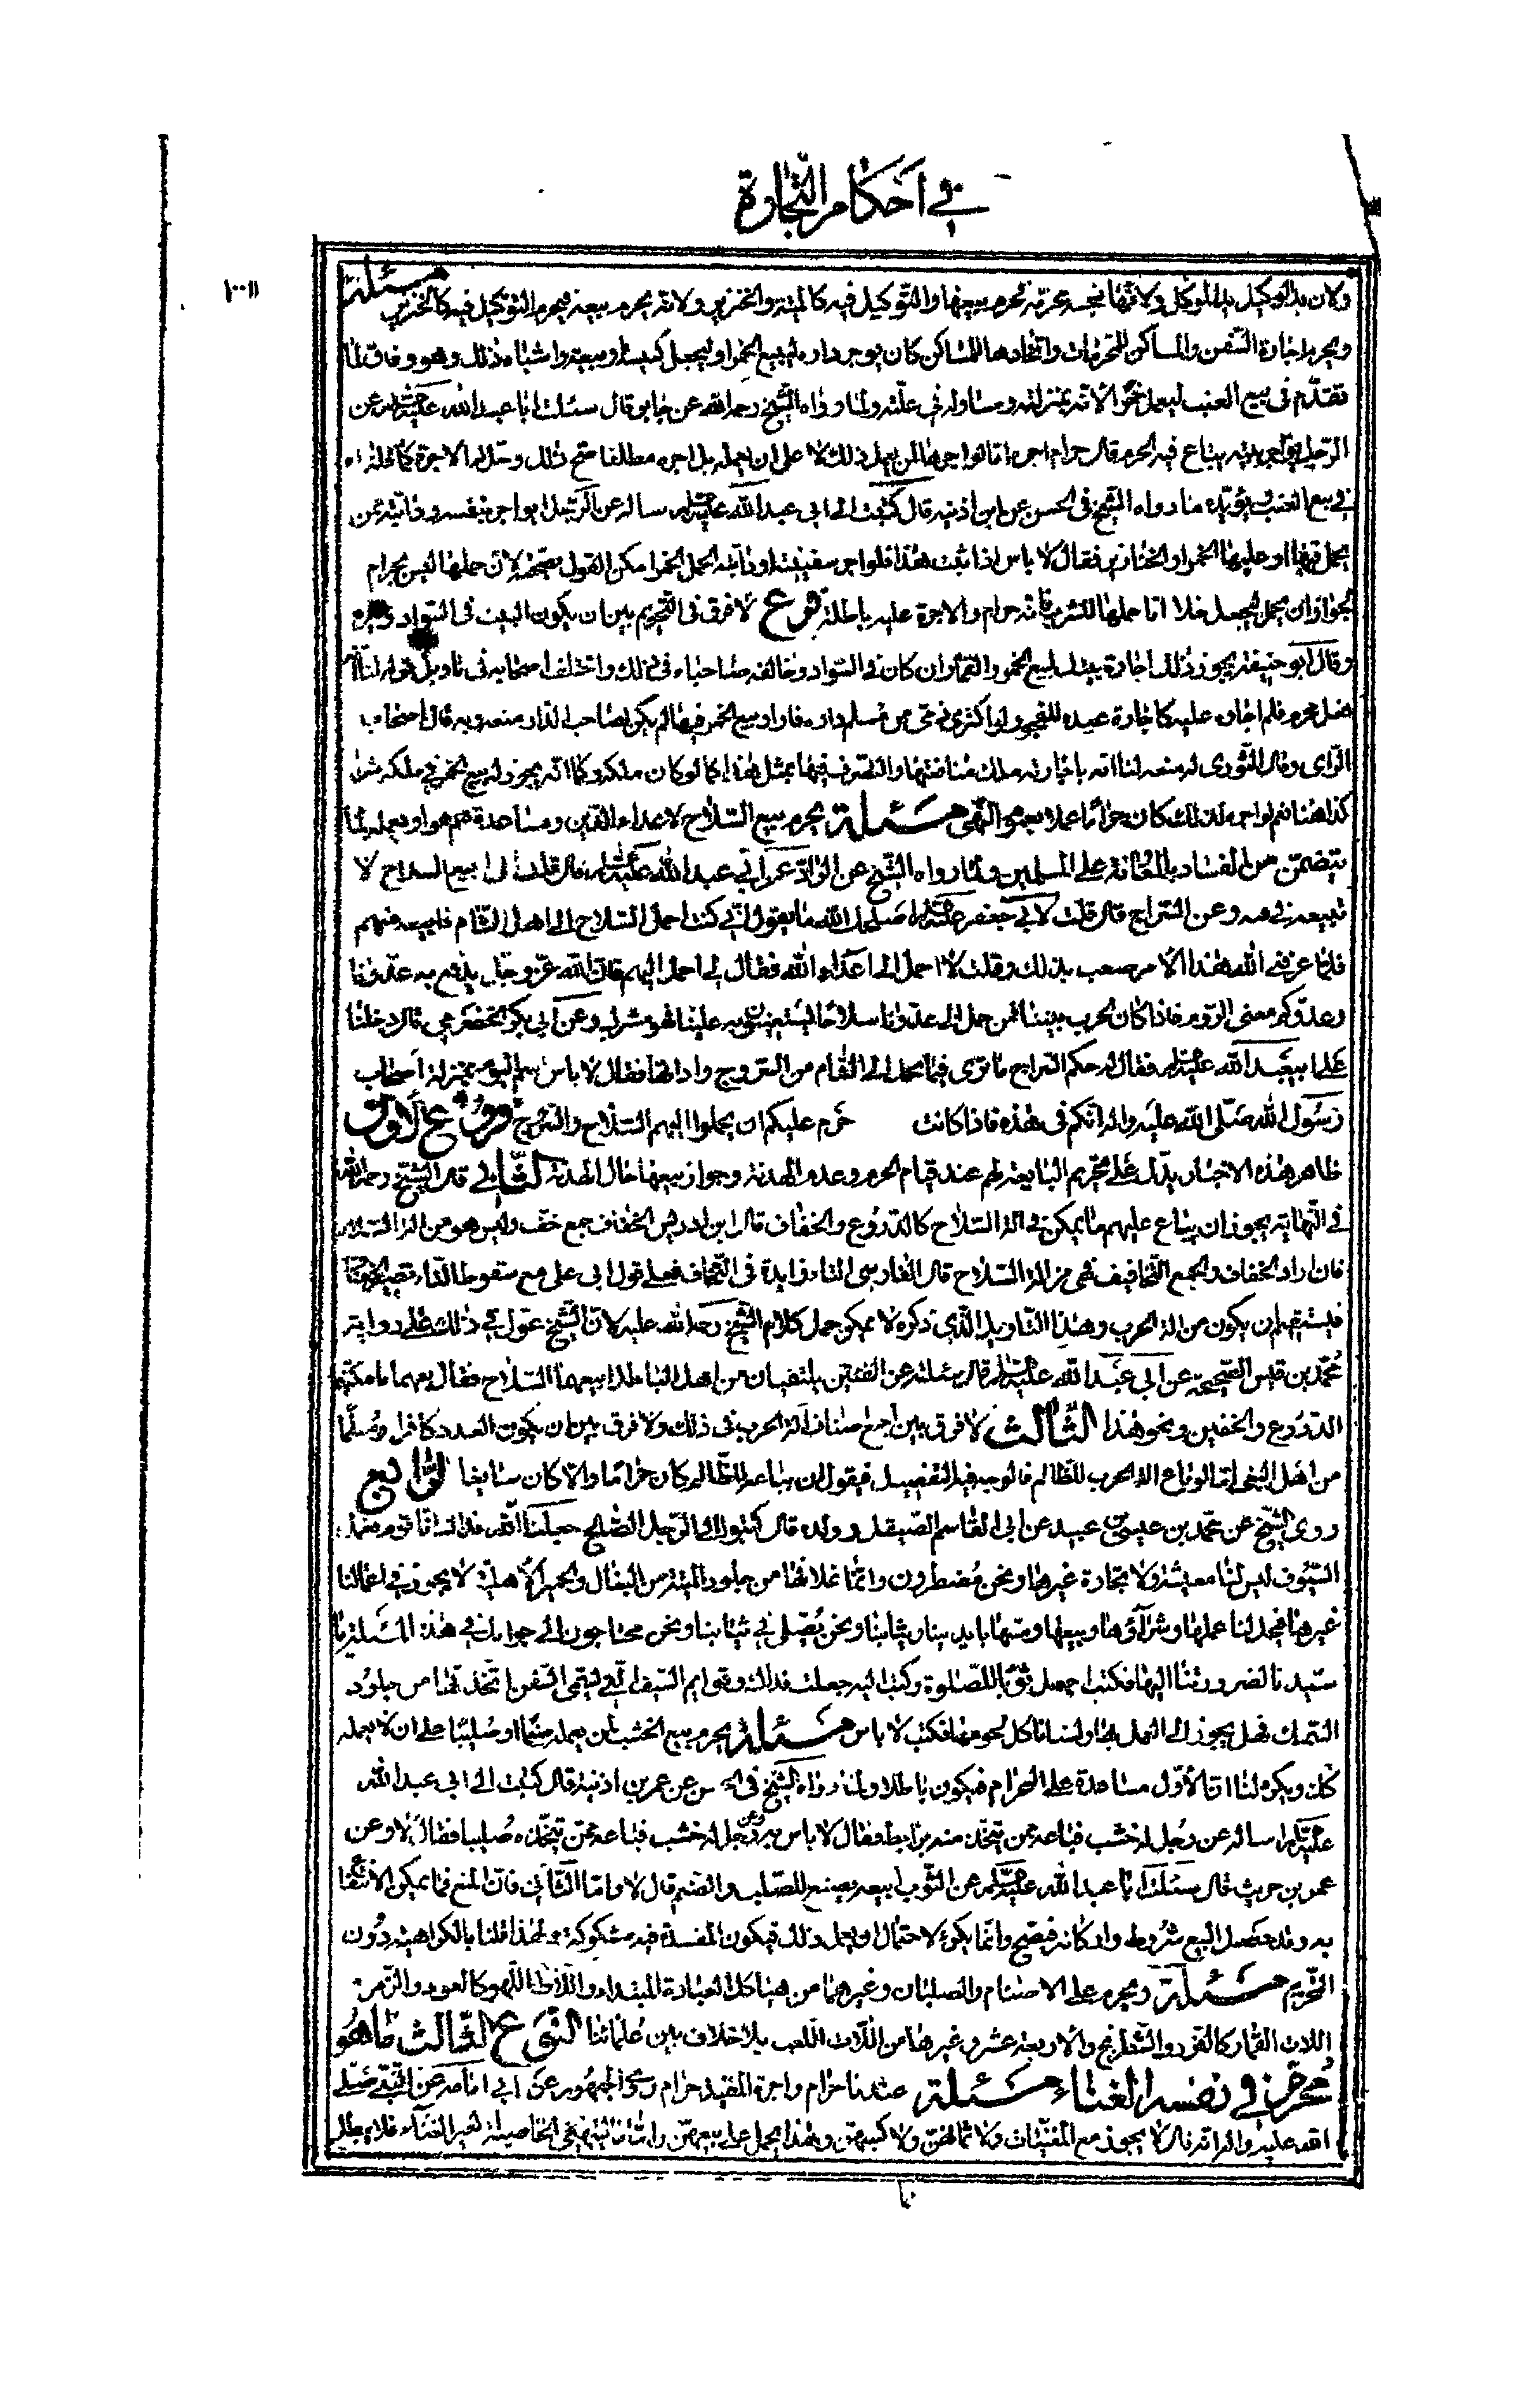 في أحكام التجارة
١٠١١
ولان يد الوكيل يد الموكل ولانها نجسة محرمة يحرم بيعها والتوكيل فيه كالميتة والخنزير ولانه يحرم بيعه فيحرم التوكيل فيه كالخنزير مسئلة
ويحرم اجارة السفن والمساكن للمحرمات واتخاذها للمناكر كان يوجر داره لبيع الخمر او ليجعل كنيسة او بيعة واشباه ذلك وهو وفاق لما
تقدم في بيع العنب ليعمل خمرا لانه بمنزلته ومساو له في علته ولما رواه الشيخ رحمه الله عن جابر قال سئلت ابا عبد الله عليه السلم عن
الرجل يواجر بيته يباع فيه الخمر قال حرام اجره اما لو اجرها لمن يعمل ذلك لا على ان يعمله بل اجره مطلقا صح ذلك وحل له الاجرة كما قلناه
في بيع العنب يؤيده ما رواه الشيخ في الحسن عن ابن اذينه قال كتبت الى ابي عبد الله عليه السلم ساله عن الرجل يواجر سفينته ودابته ممن
يحمل فيها او عليها الخمر او الخنازير فقال لا باس اذا ثبت هذا فلو اجر سفينته او دابته لحمل الخمر امكن القول بصحته لان حملها ليس بحرام
لجواز ان يحمل ليجعل خلا اما حملها للشرب فانه حرام والاجرة عليه باطلة فرع لا فرق في التحريم بين ان يكون البيت في السواد وغيره
وقال ابو حنيفة يجوز ذلك اجارة بيتك لبيع الخمر والقمار ان كان في السواد وخالفه صاحباه في ذلك واختلف اصحابه في تاويل قوله لنا انه
فعل محرم فلم اجازه عليه كاجارة عبده للفجور ولو اكترى ذمي من مسلم داره فاراد بيع الخمر فيها لم يكن لصاحب الدار منعه وبه قال اصحاب
الراي وقال الثوري له منعه لنا انه باجارته ملك منافعها والتصرف فيها بمثل هذا كما لو كان ملكه وكما انه يجوز له بيع الخمر في ملكه سرا
كذا هنا نعم لو اجره لذلك كان حراما عملا بعموم النهي مسئلة يحرم بيع السلاح لاعداء الدين ومساعدة لهم هو او بعمله لما
يتضمن من الفساد بالمعانة على المسلمين ولما رواه الشيخ عن السراد عن ابي عبد الله عليه السلم قال قلت اني ابيع السلاح لا
تبيعه في فتنة وعن السراج قال قلت لابي جعفر عليه السلم اصلحك الله ما تقول اني كنت احمل السلاح الى اهل الشام فابيعه منهم
فلما عرفني الله هذا الامر صعب بذلك وقلت لا احمل الى اعداء الله فقال لي احمل اليهم فان الله عز وجل يدفع به عدونا
وعدوكم معنى الروم فاذا كان الحرب بيننا فمن حمل الى عدونا سلاحا يستعينون به علينا فهو مشرك وعن ابي بكر الحضرمي قال دخلنا
على ابي عبد الله عليه السلم فقال له حكم السراج ما ترى فيما يحمل الى الشام من السروج واداتها فقال لا باس انتم اليوم بمنزلة اصحاب
رسول الله صلى الله عليه واله انكم في هذه فاذا كانت حرم عليكم ان يحملوا اليهم السلاح والسروج فروع الاول
ظاهر هذه الاخبار يدل على تحريم البايعة لهم عند قيام الحرم وعدم الهدنة وجواز بيعها حال الهدنة الثاني قال الشيخ رحمه الله
في النهاية يجوز ان يباع عليهم ما يمكن في الة السلاح كالدروع والخفاف قال ابن ادريس الخفاف جمع خف وليس هو من الة السلاح
فان اراد الخفاف والجمع التخافيف فهي من الة السلاح قال الفارسي التاء زايدة في التجفاف فعلى قول ابي علي مع سقوط التاء تصير الخفاف
فليستقيم ان يكون من الة الحرب وهذا التاويل الذي ذكره لا يمكن حمل كلام الشيخ رحمه الله عليه لان الشيخ عول في ذلك على رواية
محمد بن قيس الصحيحة عن ابي عبد الله عليه السلم قال سئلته عن الفئتين يلتقيان من اهل الباطل ابيعهما السلاح فقال بعهما ما يكنهما
الدروع والخفين ونحو هذا الثالث لا فرق بين اجمع اصناف الة الحرب في ذلك ولا فرق بين ان يكون العدد كافرا او مسلما
من اهل البغي اما لو باع الة الحرب للظالم فالوجه فيه التفصيل فيقول ان باعه للظلم كان حراما والا كان سايغا الرابع
روى الشيخ عن محمد بن عيسى بن عبيد عن ابي القاسم الصيقل وولده قال كتبوا الى الرجل الصالح جعلنا الله فداك انا قوم نعمل
السيوف ليس لنا معيشة ولا تجارة غيرها ونحن مضطرون وانما غلافها من جلود الميتة من البغال والحمير الاهلية لا يجوز في اعمالنا
غيرها فيحل لنا عملها وشراؤها وبيعها ومسها بايدينا وثيابنا ونحن نصلي في ثيابنا ونحن محتاجون الى جوابك في هذه المسئلة يا
سيدنا لضرورتنا اليها فكتب اجعل ثوبا للصلوة وكتب اليه جعلت فداك وقوايم السيف التي تسمى السفن اتخذتها من جلود
السمك فهل يجوز لي العمل بها ولسنا ناكل لحومها فكتب لا باس مسئلة يحرم بيع الخشب لمن يعمله صنما او صليبا على ان لا يعمله
كك ويكره لنا اما الاول مساعدة على الحرام فيكون باطلا ولما رواه الشيخ في الحسن عن عمر بن اذينة قال كتبت الى ابي عبد الله
عليه السلم اساله عن رجل له خشب فباعه ممن يتخذ منه برابط فقال لا باس به وعن رجل له خشب فباعه ممن يتخذه صليبا فقال لا وعن
عمر بن حريث قال سئلت ابا عبد الله عليه السلم عن التوت ابيعه يصنع للصليب والصنم قال لا واما الثاني فان المنع فما يمكن الانتفاع
به وقد حصل البيع شروطه واركانه فيصح وانما يكره لاحتمال ان يعمل ذلك فيكون المفسدة فيه مشكوكة ولهذا قلنا بالكراهية دون
التحريم مسئلة ويحرم على الاصنام والصلبان وغيرهما من هياكل العبادة المبتدعة والات اللهو كالعود والزمر
الات القمار كالنرد والشطرنج والاربعة عشر وغيرها من الات اللعب بلا خلاف بين علمائنا النوع الثالث ما هو
محرم في نفسه الغناء مسئلة عندنا حرام واجرة المغنية حرام روى الجمهور عن ابي امامة عن النبي صلى
الله عليه واله انه قال لا يجوز مع المغنيات ولا اثمانهن ولا كسبهن وهذا يحمل على بيعهن واما ماليتهن الحاصلة لغير الغناء فلا يبطل